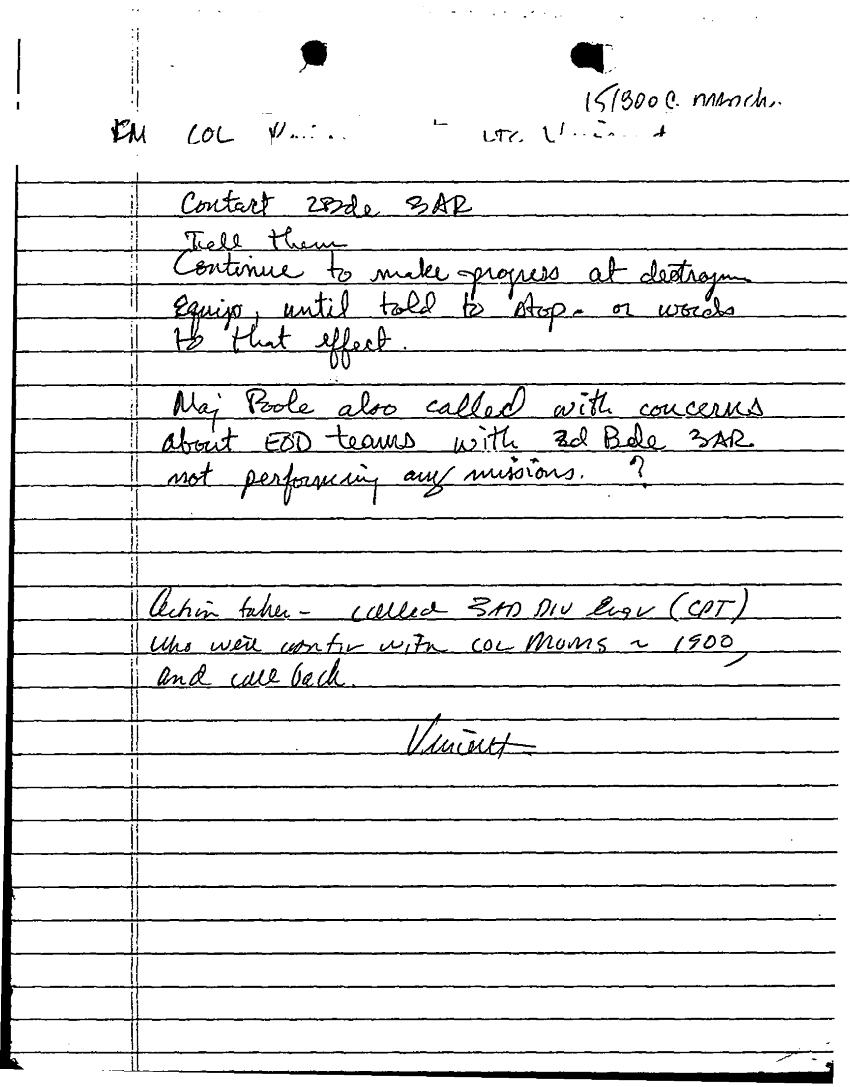 151800C March.
FM COL LTC. Vincent
Contact 2Bde 3AR
Tell them
Continue to make progress at destroying
Equip, until told to stop - or words
to that effect.
Maj Poole also called with concerns
about EOD teams with 2d Bde 3AR
not performing any missions. ?
Action taken - called 3AD DIV Engr (CPT)
who will with COL ~ 1900,
and call back.
Vincent